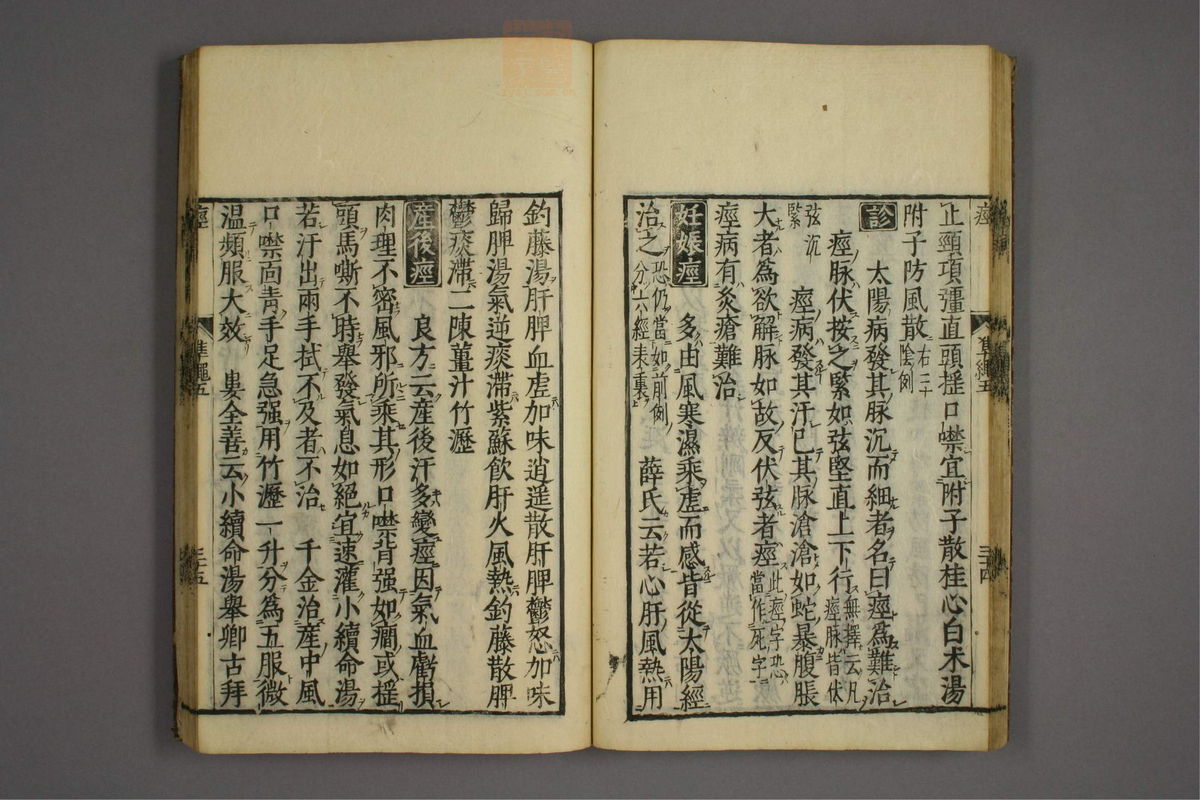 痙
準繩五
三十四
止頸項彊直頭揺口噤宜附子散桂心白朮湯
附子防風散右三十陰例
診
太陽病發其脉沉而細者名曰痙爲難治
痙脉伏按之緊如弦堅直上下行無擇云凡痙脉皆伏
弦沉緊
痙病發其汗已其脉滄滄如蛇暴腹脹
大者爲欲解脉如故反伏弦者痙此痙字恐當作死字
痙病有灸瘡難治
妊娠痙
多由風寒濕乘虚而感皆從太陽經
治之恐仍當如前例分六經表裏
薛氏云若心肝風熱用
釣藤湯肝脾血虚加味逍遥散肝脾鬱怒加味
歸脾湯氣逆痰滯紫蘇飲肝火風熱釣藤散脾
鬱痰滯二陳薑汁竹瀝
産後痙
良方云産後汗多變痙因氣血虧損
肉理不密風邪所乘其形口噤背强如癎或揺
頭馬嘶不時舉發氣息如絕宜速灌小續命湯
若汗出兩手拭不及者不治
千金治産中風
口噤面青手足急强用竹瀝一升分爲五服微
温頻服大效
婁全善云小續命湯舉卿古拜
痙
準繩五
三十五